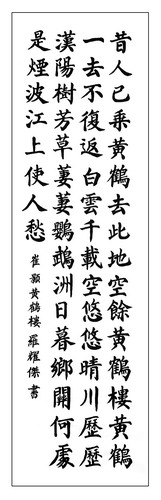 昔人已乘黃鶴去此地空餘黃鶴樓黃鶴
一去不復返白雲千載空悠悠晴川歷歷
漢陽樹芳草萋萋鸚鵡洲日暮鄉關何處
是煙波江上使人愁
崔顥黃鶴樓 羅耀傑書